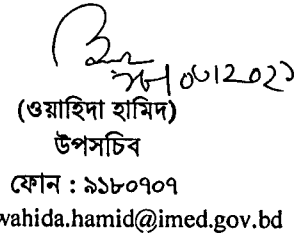 (ওয়াহিদা হামিদ)
উপসচিব
ফোন : ৯১৮০৭০৭
wahida.hamid@imed.gov.bd